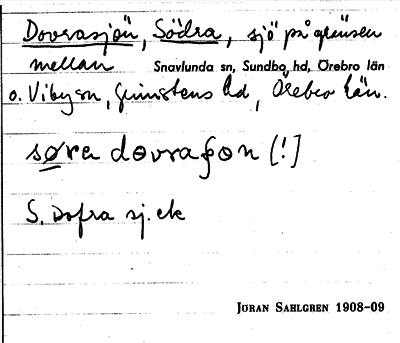 Dovrasjön, Södra, sjö på gränsen
mellan Snavlunda sn, Sundbo hd, Örebro län
o. Viby sn, Grimstens hd, Örebro län.
søra dovraʃon [!]
S. Dofra sj. ek
JÖRAN SAHLGREN 1908-09